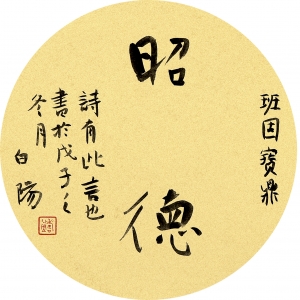 班固寶鼎
昭德
詩有此言也
書於戊子之
冬月
白陽